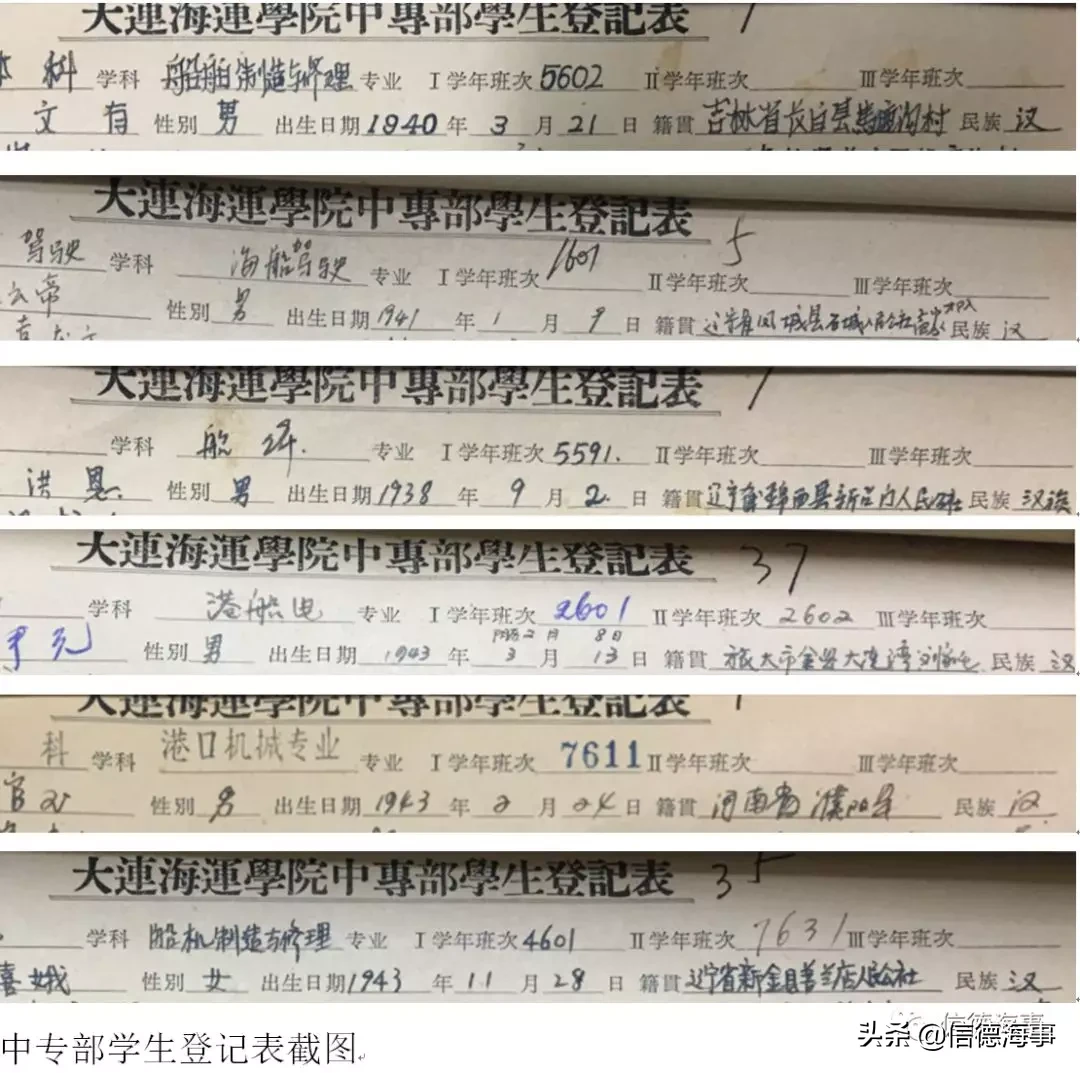 大連海運學院中專部學生登記表
本 科 学科 船舶制造与修理 专业 Ⅰ学年班次 5602 Ⅱ学年班次 Ⅲ学年班次
文 有 性別 男 出生日期 1940 年 3 月 21 日 籍贯 吉林省长白县 沟村 民族 汉
大連海運學院中專部學生登記表 5
驾驶 学科 海船驾驶 专业 Ⅰ学年班次 1601 Ⅱ学年班次 Ⅲ学年班次
云帝 性別 男 出生日期 1941 年 1 月 9 日 籍贯 辽宁省凤城县石城人民公社 民族 汉
大連海運學院中專部學生登記表
学科 船 专业 Ⅰ学年班次 5591. Ⅱ学年班次 Ⅲ学年班次
洪 恩 性別 男 出生日期 1938 年 9 月 2 日 籍贯 辽宁省锦西县新台门人民公社 民族 汉族
大連海運學院中專部學生登記表 37
学科 港船电 专业 Ⅰ学年班次 2601 Ⅱ学年班次 2602 Ⅲ学年班次
阴历2月 8日
元 性別 男 出生日期 1943 年 3 月 13 日 籍贯 旅大市金县大连湾刘家屯 民族 汉
大連海運學院中專部學生登記表
科 学科 港口机械专业 专业 Ⅰ学年班次 7611 Ⅱ学年班次 Ⅲ学年班次
性別 男 出生日期 1943 年 2 月 24 日 籍贯 河南省濮阳县 民族 汉
大連海運學院中專部學生登記表 35
学科 船机制造与修理 专业 Ⅰ学年班次 4601 Ⅱ学年班次 7631 Ⅲ学年班次
喜娥 性別 女 出生日期 1943 年 11 月 28 日 籍贯 辽宁省新金县普兰店人民公社 民族 汉
信德海事
头条 @信德海事
中专部学生登记表截图